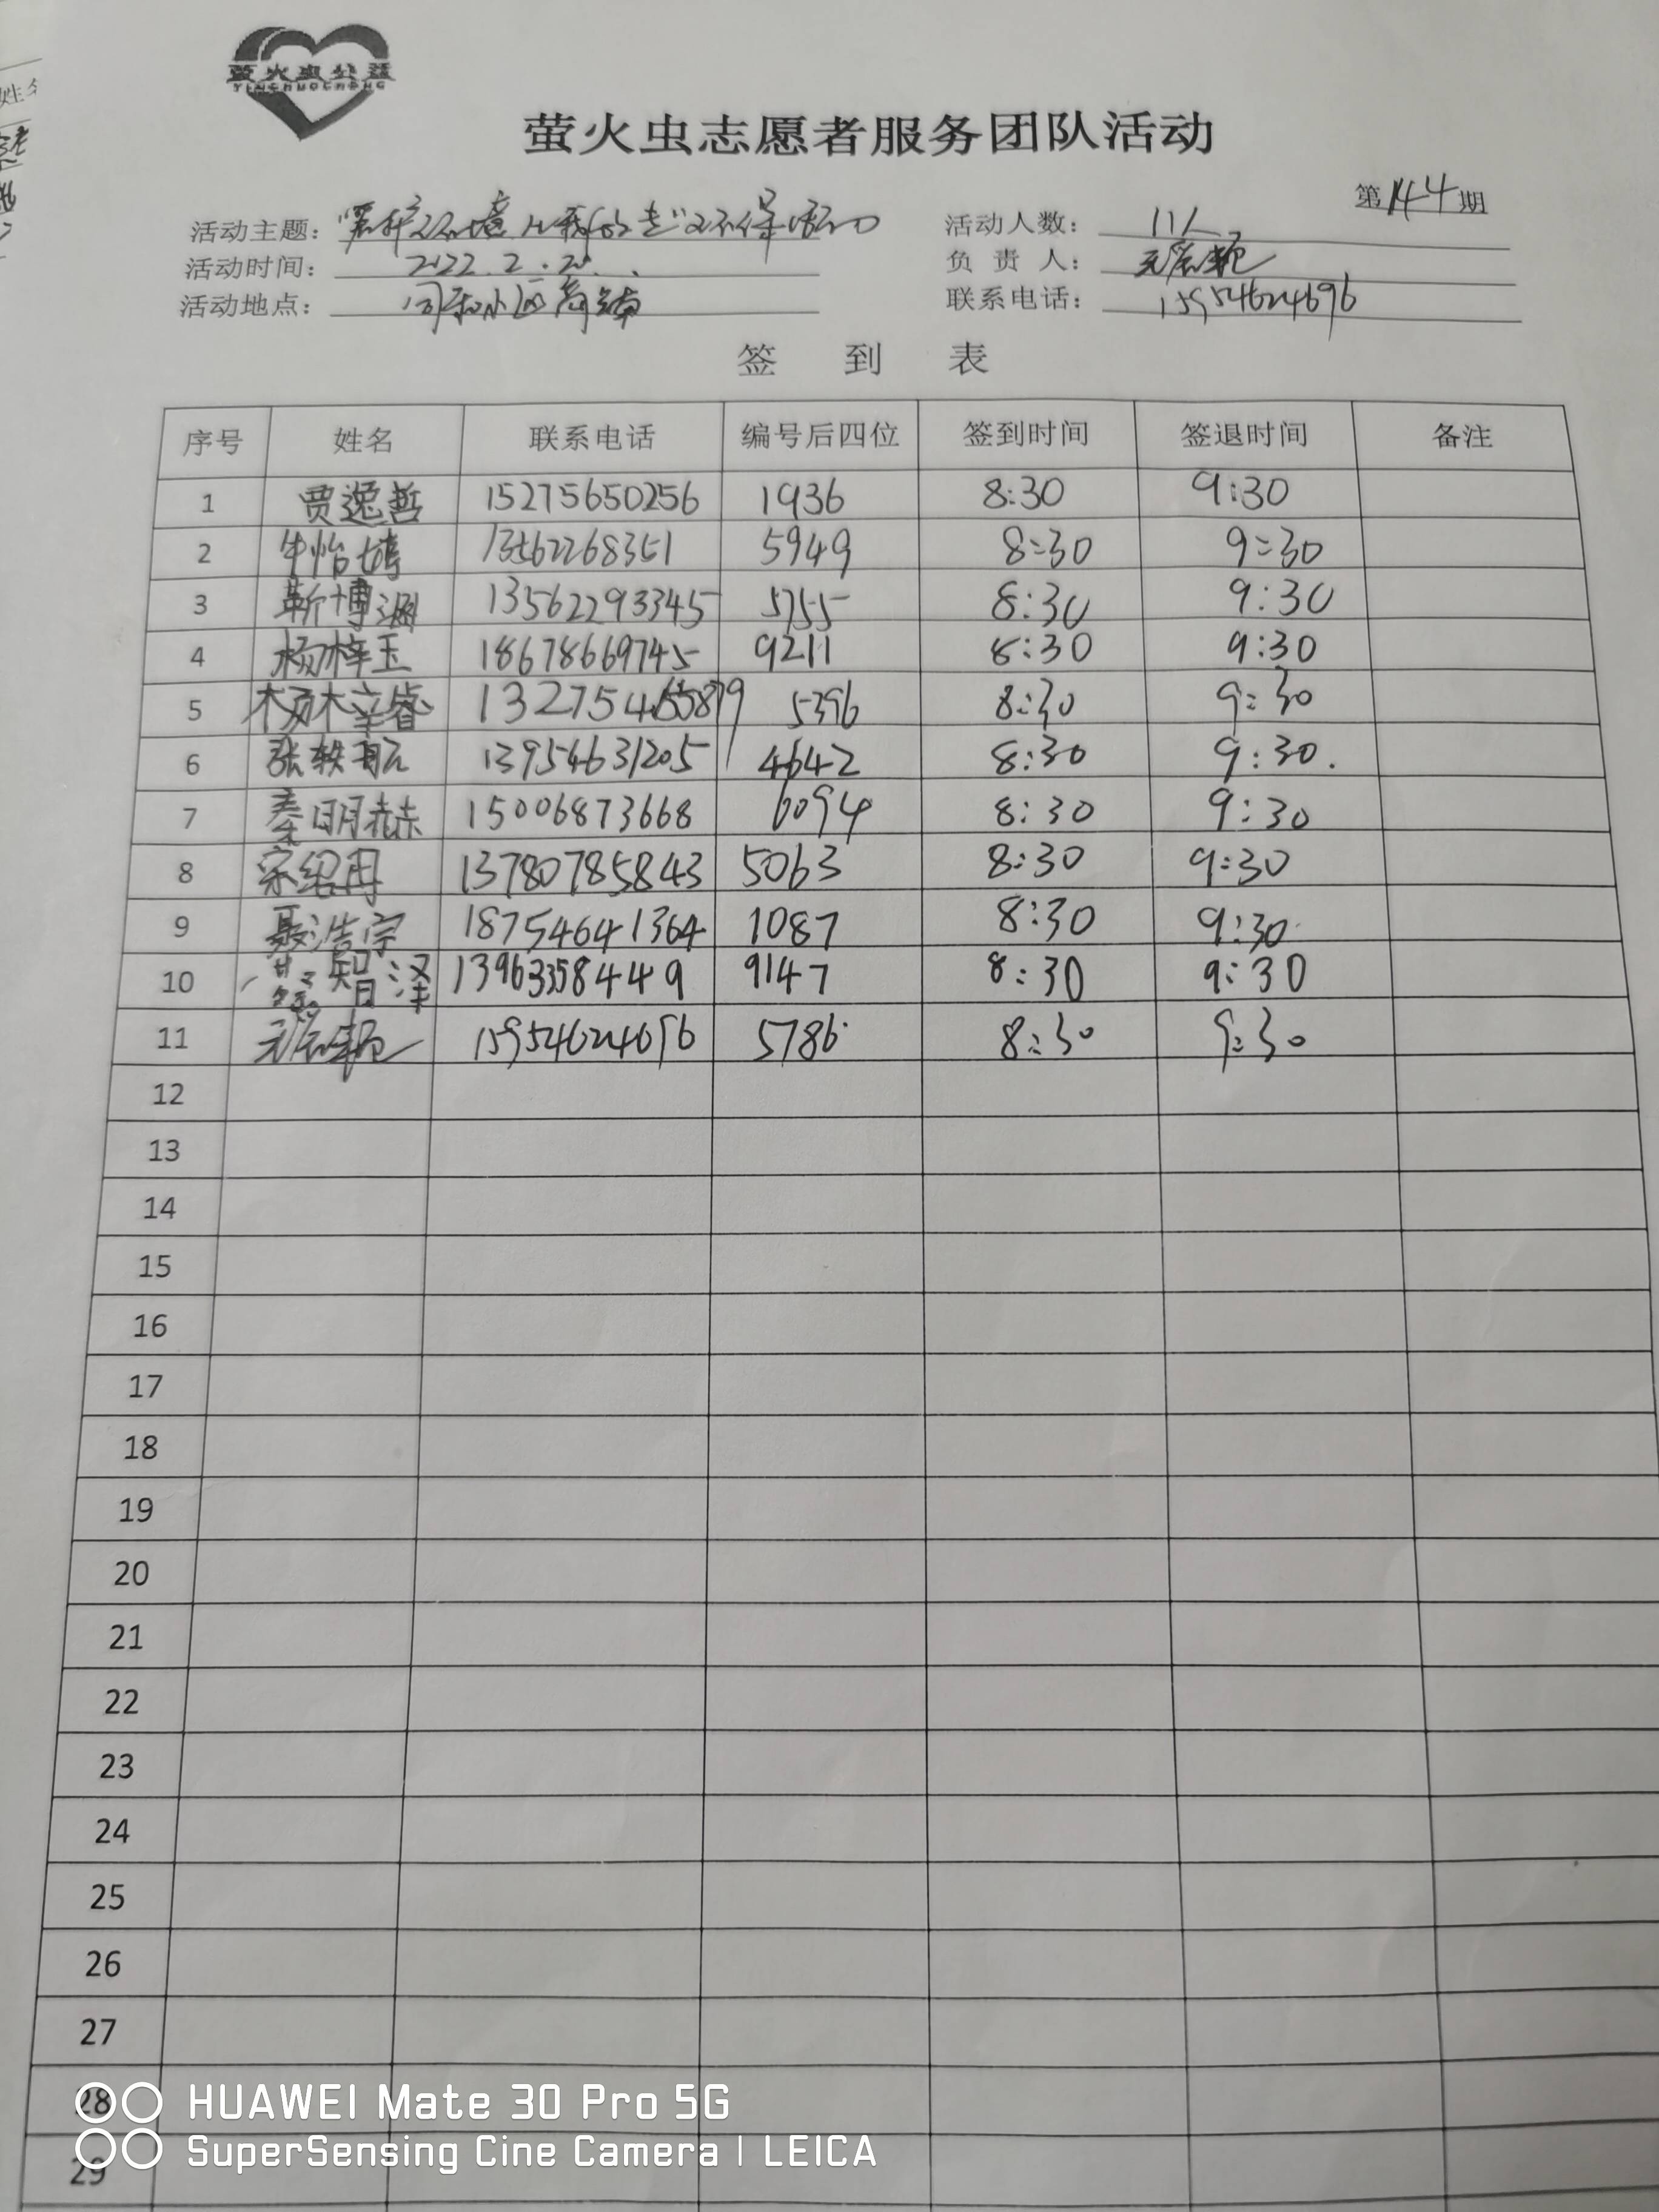 萤火虫公益
YINGHUOCHONG
萤火虫志愿者服务团队活动
第144期
活动主题：“爱护环境 从我做起”环保活动 活动人数：11人
活动时间：2022.2.20 负责人：
活动地点：同和小区商铺 联系电话：15954624696
签到表
序号 姓名 联系电话 编号后四位 签到时间 签退时间 备注
1 贾逸哲 15275650256 1936 8:30 9:30
2 牛怡婷 13562268351 5949 8:30 9:30
3 靳博渊 13562293345 5755 8:30 9:30
4 杨梓玉 18678669745 9211 8:30 9:30
5 杨梓睿 5396 8:30 9:30
6 张轶航 13954631205 4642 8:30 9:30.
7 秦明赫 15006873668 6094 8:30 9:30
8 宗绍冉 13780785843 5063 8:30 9:30
9 聂浩宇 18754641364 1087 8:30 9:30
10 智泽 13963358449 9147 8:30 9:30
11 15954624696 5786 8:30 9:30
12
13
14
15
16
17
18
19
20
21
22
23
24
25
26
27
28
29
HUAWEI Mate 30 Pro 5G
SuperSensing Cine Camera | LEICA
姓名